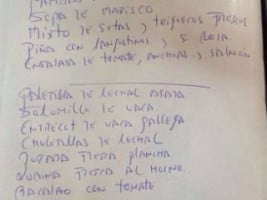 Sopa de Marisco
Mixto de Setas y trigueros frescos
Piña con langostinos y S. Rosa.
Ensalada de tomate, anchoas y salmón
Paletilla de lechal asada
Solomillo de vaca
Entrecot de vaca gallega
Chuletillas de lechal
fresca plancha
fresca al horno
Bacalao con tomate